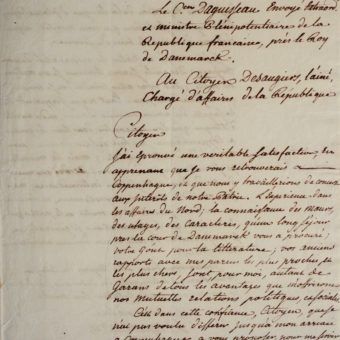 Le C.en Daguesseau Envoyé Extraord
et ministre Plénipotentiaire de la
République française, près le Roy
de Danemarck.
Au Citoyen Desaugiers, l'ainé,
Chargé d'affaires de la République
Citoyen
J'ai éprouvé une véritable satisfaction, en
apprenant que je vous retrouverais à
Coppenhague, et que nous y travaillerions de concert
aux intérêts de notre Patrie. L'Expérience dans
les affaires du Nord; la connaissance des mœurs,
des usages, des caractères, qu'un long séjour
près la cour de Danemarck vous a procuré;
votre gout pour la littérature; vos anciens
rapports avec mes parens les plus proches et
les plus chers, sont pour moi, autant de
garans de tous les avantages que m'offriront
nos mutuelles relations politiques, et sociales.
C'est dans cette confiance, Citoyen, que je
n'ai pas voulu différer jusqu'à mon arrivée
à Coppenhague, à vous